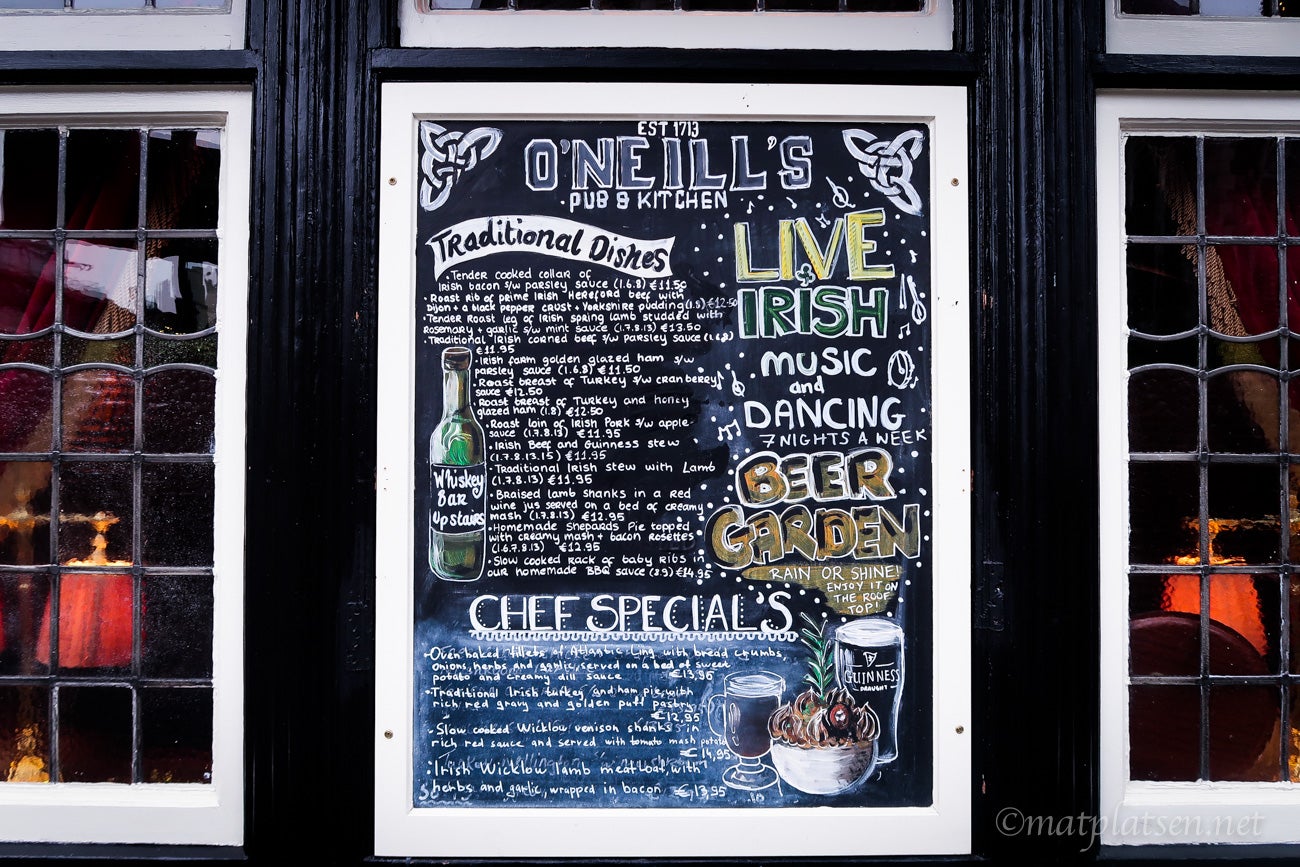 EST 1713
O'NEILL'S
PUB & KITCHEN
Traditional Dishes
• Tender cooked collar of
Irish bacon s/w parsley sauce (1.6.8) €11.50
• Roast Rib of prime Irish "Hereford" beef with
Dijon + a black pepper crust + Yorkshire pudding (1.8) €12.50
• Tender Roast leg of Irish spring lamb studded with
Rosemary + garlic s/w mint sauce (1.7.8.13) €13.50
Traditional Irish corned beef s/w parsley sauce (1.6.8)
€11.95
• Irish farm golden glazed ham s/w
parsley sauce (1.6.8) €11.50
• Roast breast of Turkey s/w cranberry
sauce €12.50
• Roast breast of Turkey and honey
glazed ham (1.8) €12.50
• Roast loin of Irish Pork s/w apple-
sauce (1.7.8.13) €11.95
• Irish Beef and Guinness stew
(1.7.8.13.15) €11.95
• Traditional Irish stew with Lamb
(1.7.8.13) €11.95
• Braised lamb shanks in a red
wine jus served on a bed of creamy
mash (1.7.8.13) €12.95
• Homemade Shepards Pie topped
with creamy mash + bacon Rosettes
(1.6.7.8.13) €12.95
• Slow cooked rack of baby ribs in
our homemade BBQ sauce (8.9) €14.95
Whiskey
Bar
Upstairs
LIVE
IRISH
MUSIC
and
DANCING
7 NIGHTS A WEEK
BEER
GARDEN
RAIN OR SHINE!
ENJOY IT ON
THE ROOF
TOP!
CHEF SPECIAL'S
• Oven baked fillets of Atlantic Ling with bread crumbs,
onions, herbs and garlic, served on a bed of sweet
potato and creamy dill sauce €13,95
• Traditional Irish turkey and ham pie, with
rich red gravy and golden puff pastry
€12,95
• Slow cooked Wicklow venison shanks in
rich red sauce and served with tomato mash potato
€14,95
• Irish Wicklow lamb meatloaf, with
herbs and garlic, wrapped in bacon €13,95
GUINNESS
DRAUGHT
©matplatsen.net